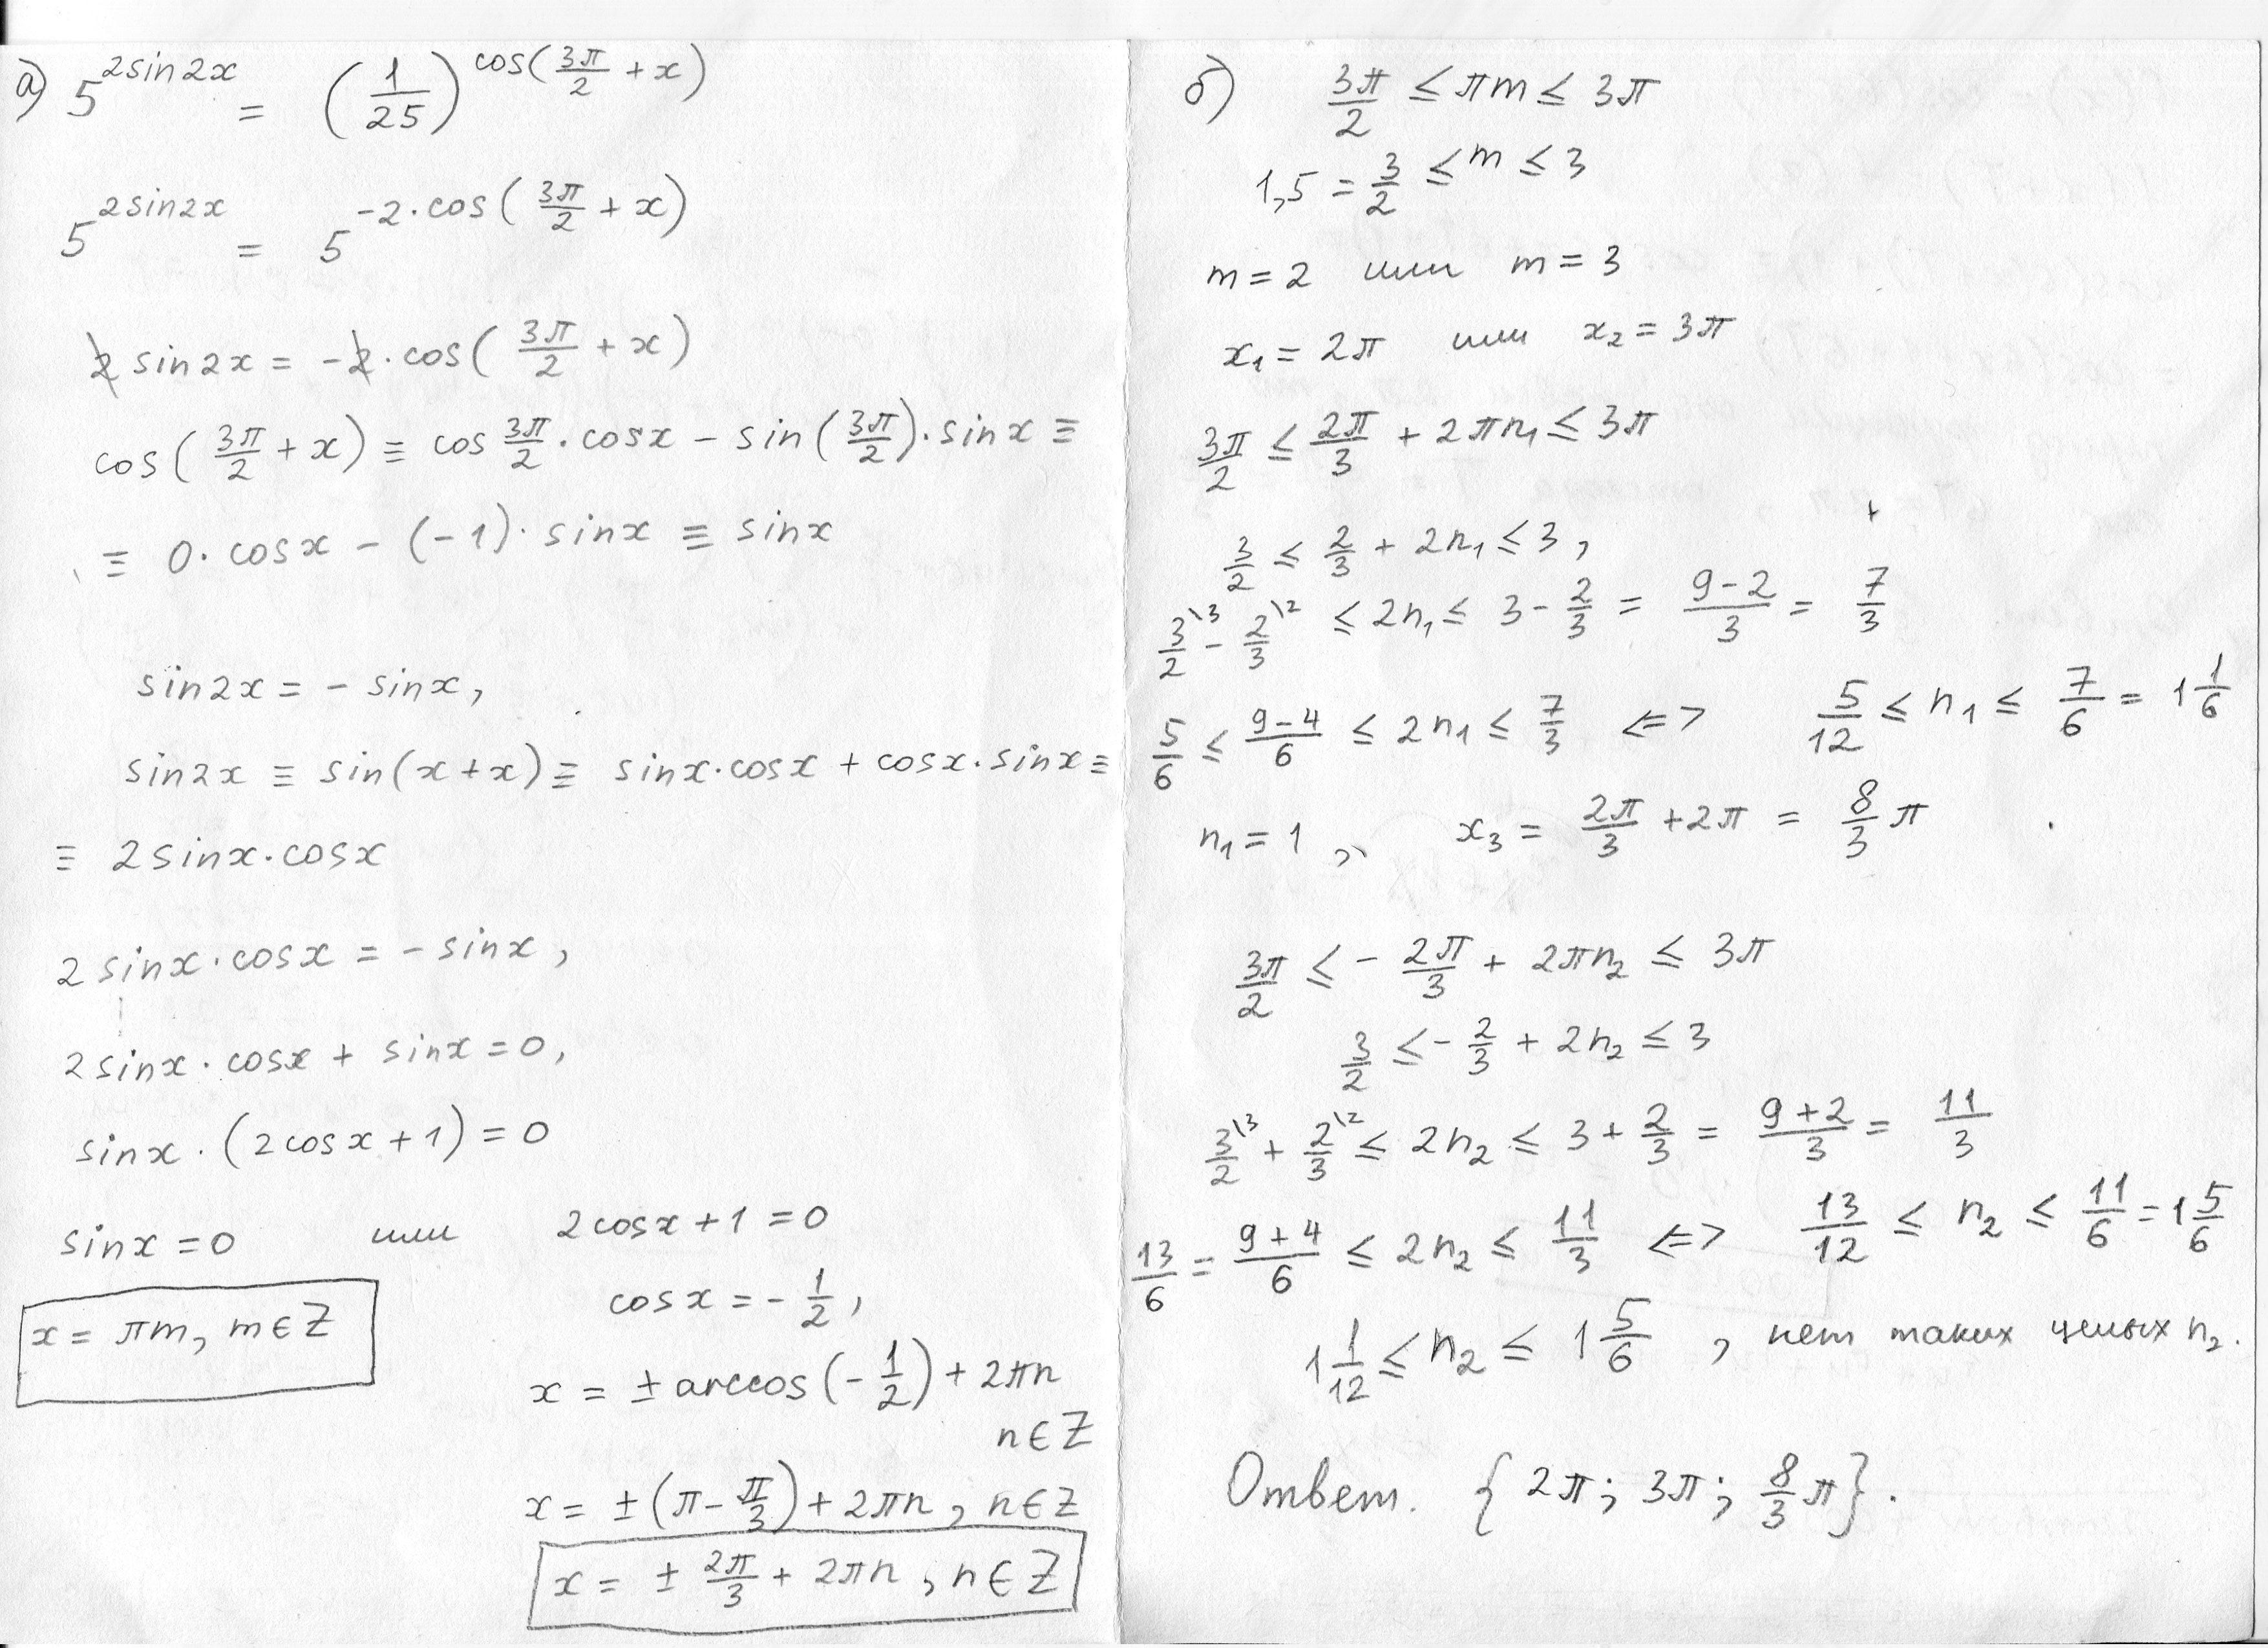 а) 5^{2sin2x} = (1/25)^{cos(3π/2 + x)}
5^{2sin2x} = 5^{-2·cos(3π/2 + x)}
2 sin2x = -2·cos(3π/2 + x)
cos(3π/2 + x) ≡ cos 3π/2 · cosx - sin(3π/2)·sinx ≡
≡ 0·cosx - (-1)·sinx ≡ sinx
sin2x = - sinx,
sin2x ≡ sin(x+x) ≡ sinx·cosx + cosx·sinx ≡
≡ 2sinx·cosx
2sinx·cosx = - sinx,
2sinx·cosx + sinx = 0,
sinx·(2cosx+1) = 0
sinx = 0 или 2cosx+1 = 0
cosx = - 1/2,
x = πm, m∈Z
x = ± arccos(- 1/2) + 2πn
n∈Z
x = ±(π - π/3) + 2πn, n∈Z
x = ± 2π/3 + 2πn, n∈Z
б) 3π/2 ≤ πm ≤ 3π
1,5 = 3/2 ≤ m ≤ 3
m = 2 или m = 3
x₁ = 2π или x₂ = 3π
3π/2 ≤ 2π/3 + 2πn₁ ≤ 3π
3/2 ≤ 2/3 + 2n₁ ≤ 3,
3/2^{\3} - 2/3^{\2} ≤ 2n₁ ≤ 3 - 2/3 = (9-2)/3 = 7/3
5/6 ≤ (9-4)/6 ≤ 2n₁ ≤ 7/3 <=> 5/12 ≤ n₁ ≤ 7/6 = 1 1/6
n₁ = 1, x₃ = 2π/3 + 2π = 8/3 π
3π/2 ≤ - 2π/3 + 2πn₂ ≤ 3π
3/2 ≤ - 2/3 + 2n₂ ≤ 3
3/2^{\3} + 2/3^{\2} ≤ 2n₂ ≤ 3 + 2/3 = (9+2)/3 = 11/3
13/6 = (9+4)/6 ≤ 2n₂ ≤ 11/3 <=> 13/12 ≤ n₂ ≤ 11/6 = 1 5/6
1 1/12 ≤ n₂ ≤ 1 5/6, нет таких целых n₂.
Ответ. {2π; 3π; 8/3 π}.